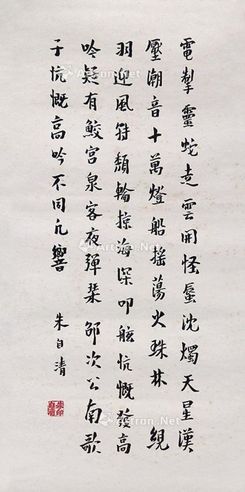 電掣靈蛇走雲開怪蜃沈燭天星漢
壓潮音十萬燈船搖蕩火珠林
羽迎風頹輪掠海深叩舷忼慨發高
吟疑有鮫宮泉客夜彈琴 邵次公南歌
子忼慨高吟不同凡響
朱自清